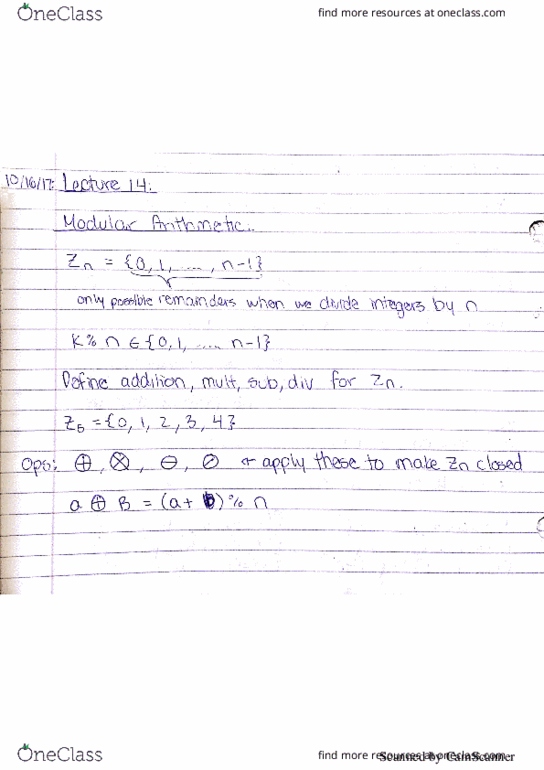 OneClass
find more resources at oneclass.com
10/16/17: Lecture 14:
Modular Arithmetic..
Zn = {0, 1, ...., n-1}
only possible remainders when we divide integers by n
K % n ∈ {0, 1, .... n-1}
Define addition, mult, sub, div for Zn.
Z5 = {0, 1, 2, 3, 4}
Ops: ⊕, ⊗, ⊖, ⊘ ← apply these to make Zn closed
a ⊕ B = (a + b) % n
OneClass
find more resources at oneclass.com
Scanned by CamScanner